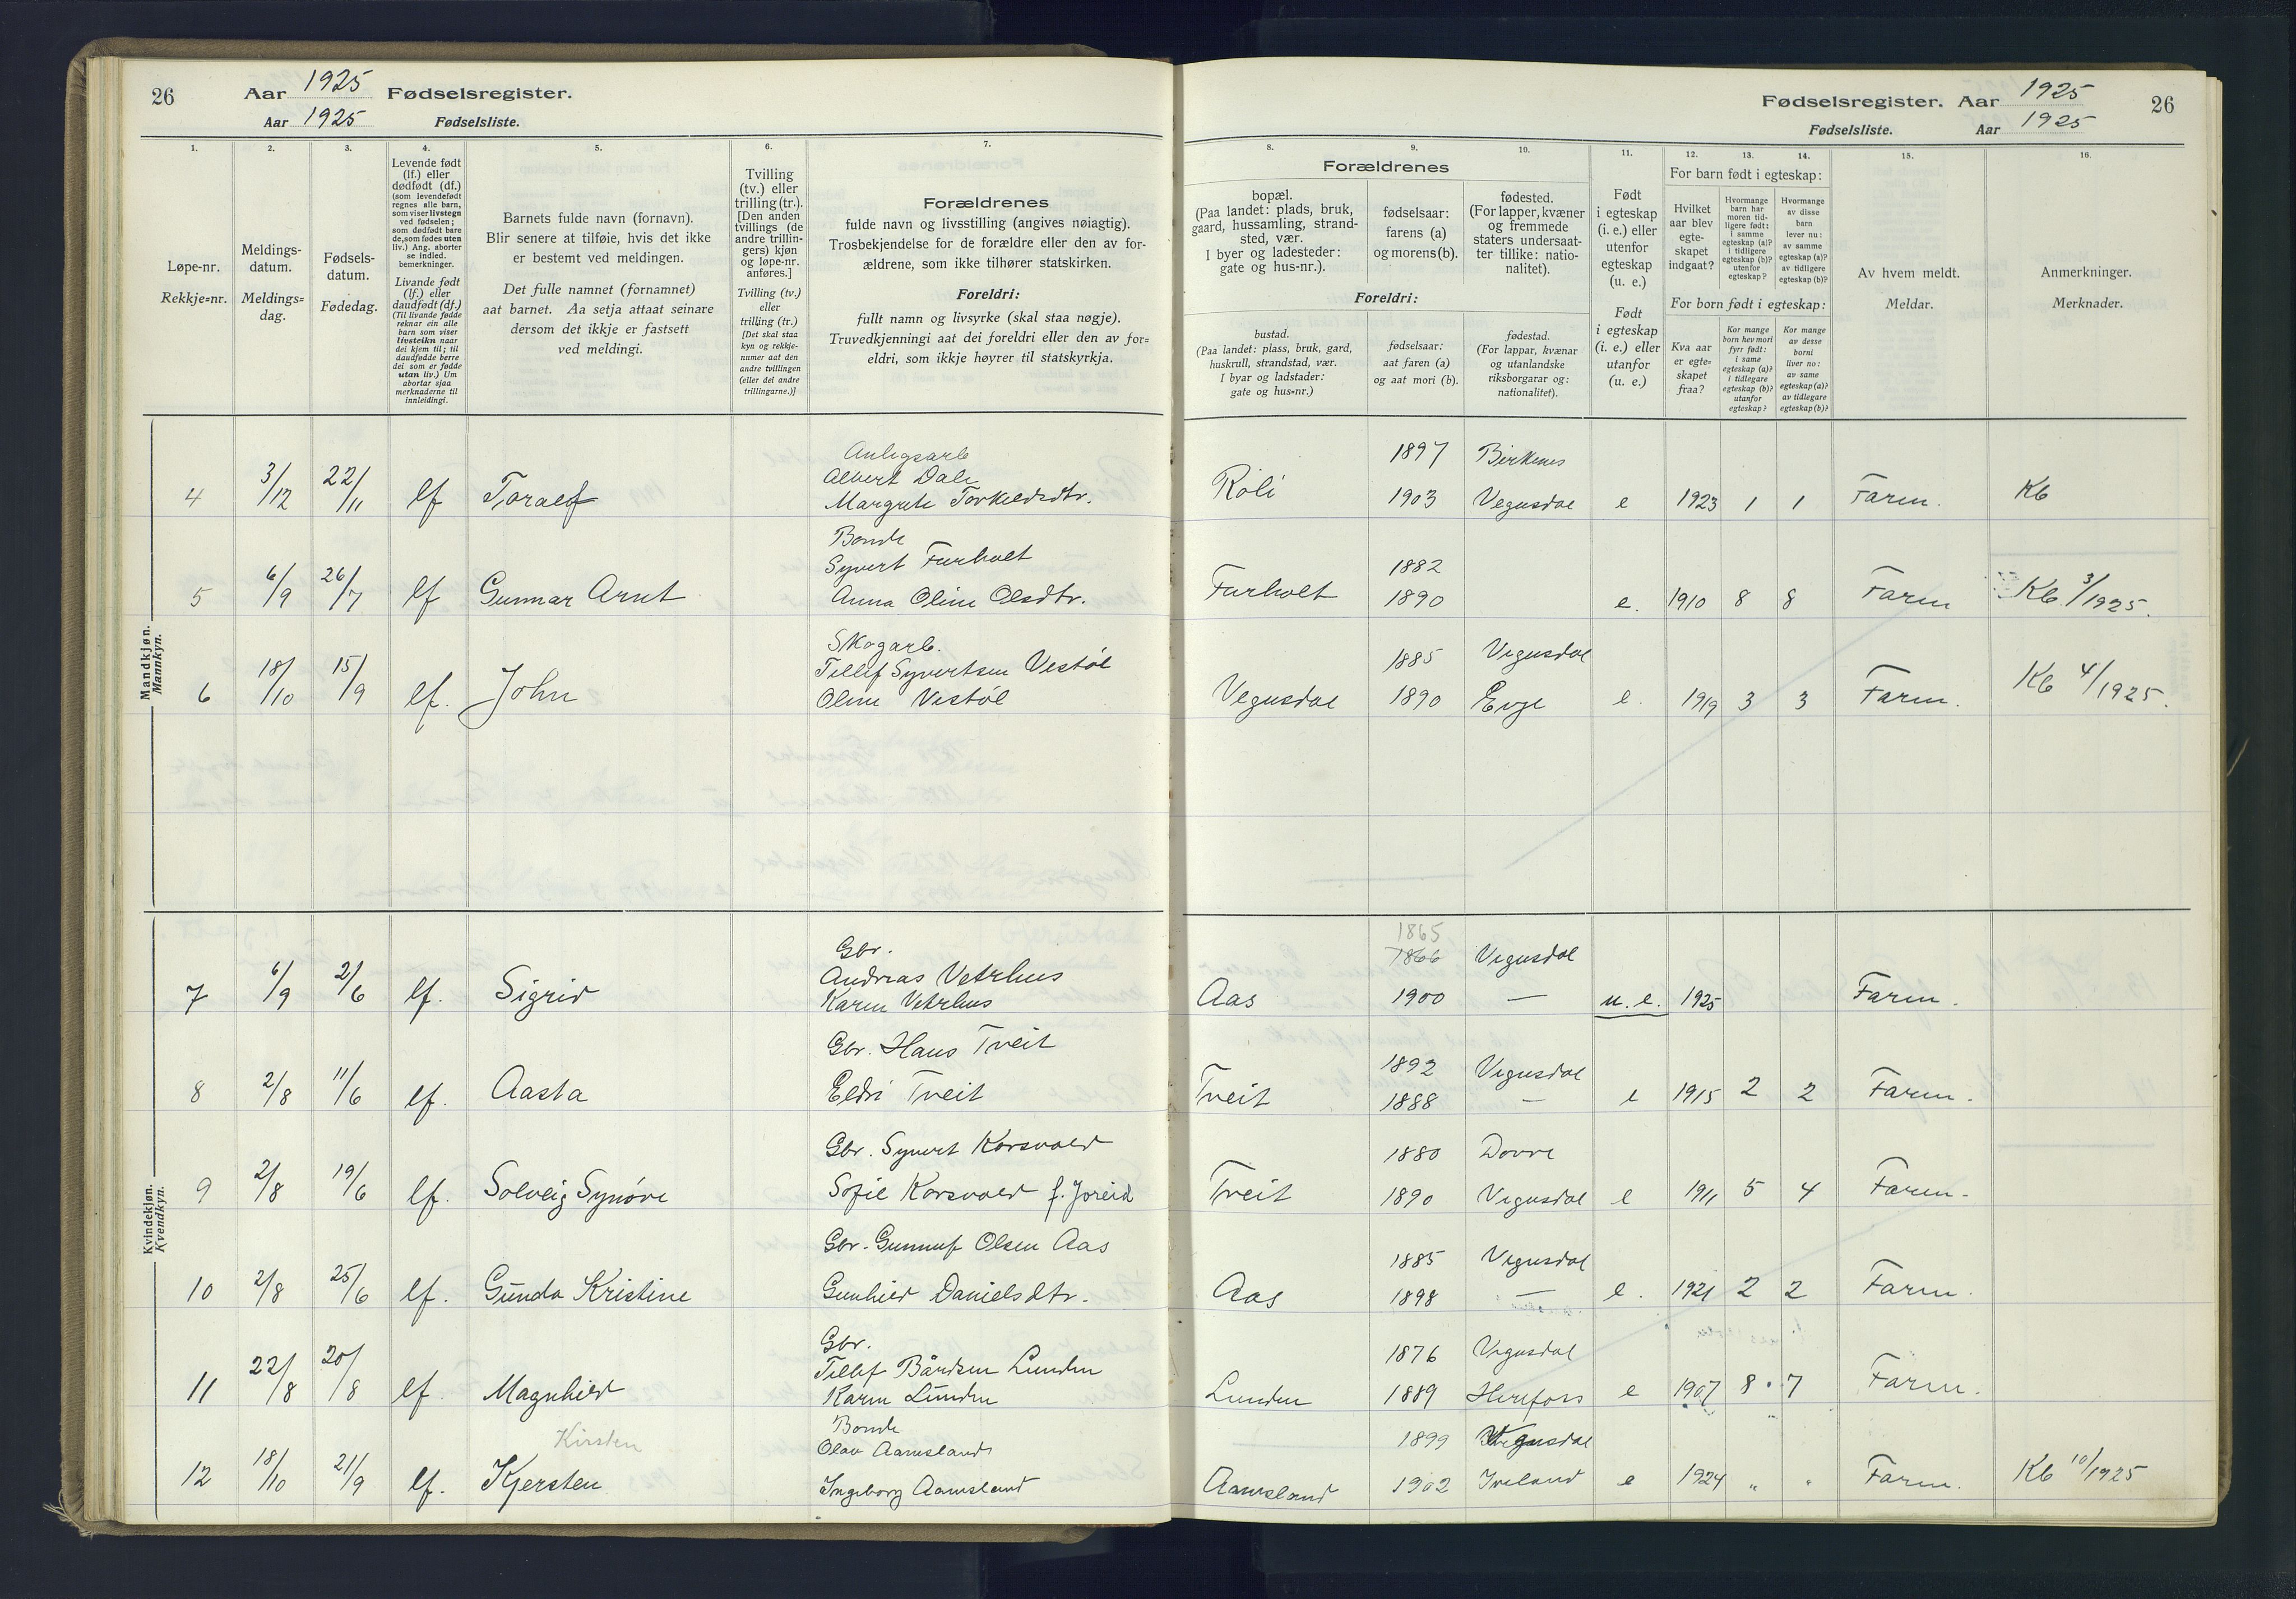 26 Aar 1925 Fødselsregister.
Aar 1925 Fødselsliste.
Fødselsregister. Aar 1925 26
Fødselsliste. Aar 1925
1. 2. 3. 4. 5. 6. 7.
Løpe-nr.
Rekkje=nr.
Meldings-
datum.
Meldings=
dag.
Fødsels-
datum.
Fødedag.
Levende født
(lf.) eller
dødfødt (df.)
(som levendefødt
regnes alle barn,
som viser livstegn
ved fødselen;
som dødfødt bare
de, som fødes uten
liv.) Ang. aborter
se indled.
bemerkninger.
Livande født
(lf.) eller
daudfødt (df.)
(Til livande fødde
reknar ein alle
barn som viser
livsteikn naar
dei kjem til; til
daudfødde berre
dei som er fødde
utan liv.) Um
abortar sjaa
merknaderne til
innleidingi.
Barnets fulde navn (fornavn).
Blir senere at tilføie, hvis det ikke
er bestemt ved meldingen.
Det fulle namnet (fornamnet)
aat barnet. Aa setja attaat seinare
dersom det ikkje er fastsett
ved meldingi.
Tvilling
(tv.) eller
trilling (tr.).
[Den anden
tvillings (de
andre trillin-
gers) kjøn
og løpe-nr.
anføres.]
Tvilling (tv.)
eller
trilling (tr.)
[Det skal staa
kyn og rekkje-
numer aat den
andre tvillingen
(eller dei andre
trillingarne.)]
Forældrenes
fulde navn og livsstilling (angives nøiagtig).
Trosbekjendelse for de forældre eller den av for-
ældrene, som ikke tilhører statskirken.
Foreldri:
fullt namn og livsyrke (skal staa nøgje).
Truvedkjenningi aat dei foreldri eller den av for=
eldri, som ikkje høyrer til statskyrkja.
8. 9. 10. 11. 12. 13. 14. 15. 16.
Forældrenes
bopæl.
(Paa landet: plads, bruk,
gaard, hussamling, strand-
sted, vær.
I byer og ladesteder:
gate og hus-nr.).
fødselsaar:
farens (a)
og morens (b).
fødested.
(For lapper, kvæner
og fremmede
staters undersaat-
ter tillike: natio-
nalitet).
Foreldri:
bustad.
(Paa landet: plass, bruk, gard,
huskrull, strandstad, vær.
I byar og ladstader:
gate og hus=nr.)
fødselsaar:
aat faren (a)
og aat mori (b).
fødestad.
(For lappar, kvænar
og utanlandske
riksborgarar og:
nationalitet).
Født
i egteskap
(i. e.) eller
utenfor
egteskap
(u. e.)
Født
i egteskap
(i. e.) eller
utanfor
(u. e.)
For barn født i egteskap:
Hvilket
aar blev
egte-
skapet
indgaat?
Hvormange
barn har
moren tid-
ligere født:
i samme
egteskap (a)?
i tidligere
egteskap (b)?
utenfor
egteskap?
Hvormange
av disse
barn
lever nu:
av samme
egteskap (a)?
av tidligere
egteskap (b)?
For born født i egteskap:
Kva aar
er egte=
skapet
fraa?
Kor mange
born hev mori
fyrr født:
i same
egteskap (a)?
i tidlegare
egteskap (b)?
utanfor
egteskap?
Kor mange
av desse
borni
liver no:
av same
egteskap (a)?
av tidlegare
egteskap (b)?
Av hvem meldt.
Meldar.
Anmerkninger.
Merknader.
Mandkjøn.
Mannkyn.
Anlegsarb
Albert Dale 1897 Birkenes
4 3/12 22/11 lf Toralf Margrete Torkildsdtr. Roli 1903 Vegusdal e 1923 1 1 Faren. Kb
Bonde
Syvert Furholt 1882
5 6/9 26/7 lf Gunnar Arnt Anna Oline Olsdtr. Furholt 1890 e. 1910 8 8 Faren Kb 3/1925.
Skogarb.
Tellef Syvertsen Vestøl 1885 Vegusdal
6 18/10 15/9 lf. John Oline Vestøl Vegusdal 1890 Evje e. 1919 3 3 Faren. Kb 4/1925.
Kvindekjøn.
Kvendkyn.
Gbr. 1865
Andreas Vetrhus 1866 Vegusdal
7 6/9 2/6 lf. Sigrid Karen Vetrhus Aas 1900 — u. e. 1925 Faren.
Gbr. Hans Tveit 1892 Vegusdal
8 2/8 11/6 lf. Aasta Eldri Tveit Tveit 1888 — e 1915 2 2 Faren.
Gbr. Syvert Korsvold 1880 Dovre
9 2/8 19/6 lf. Solveig Synøve Sofie Korsvold f. Joreid Tveit 1890 Vegusdal e 1911 5 4 Faren.
Gbr. Gunnuf Olsen Aas 1885 Vegusdal
10 2/8 25/6 lf. Gunda Kristine Gunhild Danielsdtr. Aas 1898 — e. 1921 2 2 Faren.
Gbr.
Tellef Bårdsen Lunden 1876 Vegusdal
11 22/8 20/8 lf. Magnhild Karen Lunden Lunden 1889 Herefoss e 1907 8 7 Faren.
Kirsten Bonde
Olav Aamsland 1899 Vegusdal
12 18/10 21/9 lf. Kjersten Ingeborg Aamsland Aamsland 1902 Iveland e 1924 " " Faren. Kb 10/1925